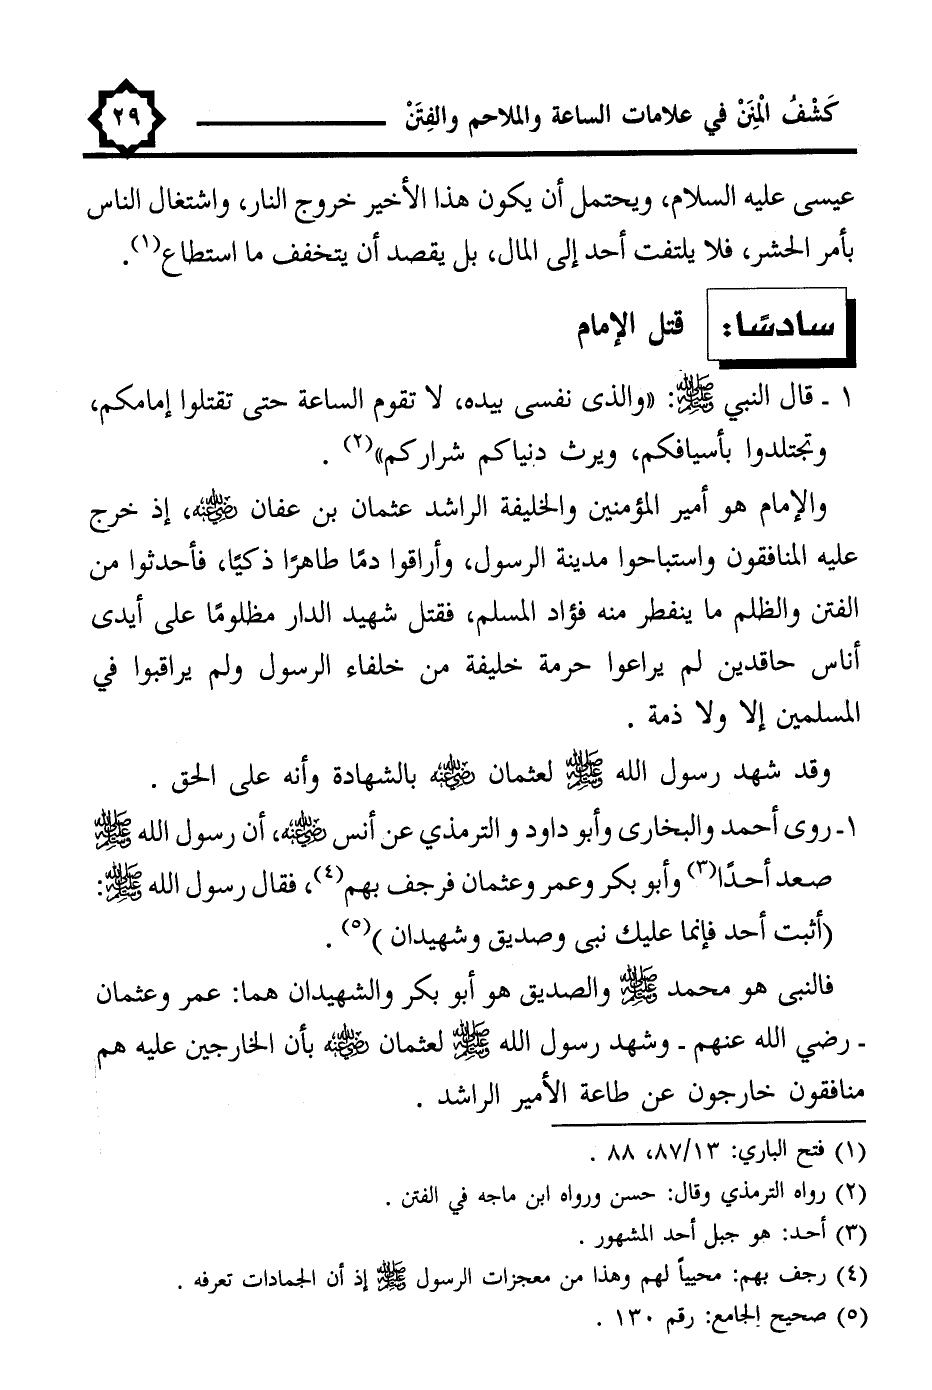 كَشْفُ الْمِنَنْ في علامات الساعة والملاحم والفِتَنْ ٢٩
عيسى عليه السلام، ويحتمل أن يكون هذا الأخير خروج النار، واشتغال الناس
بأمر الحشر، فلا يلتفت أحد إلى المال، بل يقصد أن يتخفف ما استطاع(١).
سادسًا: قتل الإمام
١ ـ قال النبي ﷺ: «والذى نفسى بيده، لا تقوم الساعة حتى تقتلوا إمامكم،
وتجتلدوا بأسيافكم، ويرث دنياكم شراركم»(٢) .
والإمام هو أمير المؤمنين والخليفة الراشد عثمان بن عفان رضي الله عنه، إذ خرج
عليه المنافقون واستباحوا مدينة الرسول، وأراقوا دمًا طاهرًا ذكيًا، فأحدثوا من
الفتن والظلم ما ينفطر منه فؤاد المسلم، فقتل شهيد الدار مظلومًا على أيدى
أناس حاقدين لم يراعوا حرمة خليفة من خلفاء الرسول ولم يراقبوا في
المسلمين إلا ولا ذمة .
وقد شهد رسول الله ﷺ لعثمان رضي الله عنه بالشهادة وأنه على الحق .
١ـ روى أحمد والبخارى وأبو داود و الترمذي عن أنس رضي الله عنه، أن رسول الله ﷺ
صعد أحدًا(٣) وأبو بكر وعمر وعثمان فرجف بهم(٤)، فقال رسول الله ﷺ:
(أثبت أحد فإنما عليك نبى وصديق وشهيدان )(٥) .
فالنبى هو محمد ﷺ والصديق هو أبو بكر والشهيدان هما: عمر وعثمان
ـ رضي الله عنهم ـ وشهد رسول الله ﷺ لعثمان رضي الله عنه بأن الخارجين عليه هم
منافقون خارجون عن طاعة الأمير الراشد .
(١) فتح الباري: ٨٧/١٣، ٨٨ .
(٢) رواه الترمذي وقال: حسن ورواه ابن ماجه في الفتن .
(٣) أحد: هو جبل أحد المشهور .
(٤) رجف بهم: محيياً لهم وهذا من معجزات الرسول ﷺ إذ أن الجمادات تعرفه .
(٥) صحيح الجامع: رقم ١٣٠ .